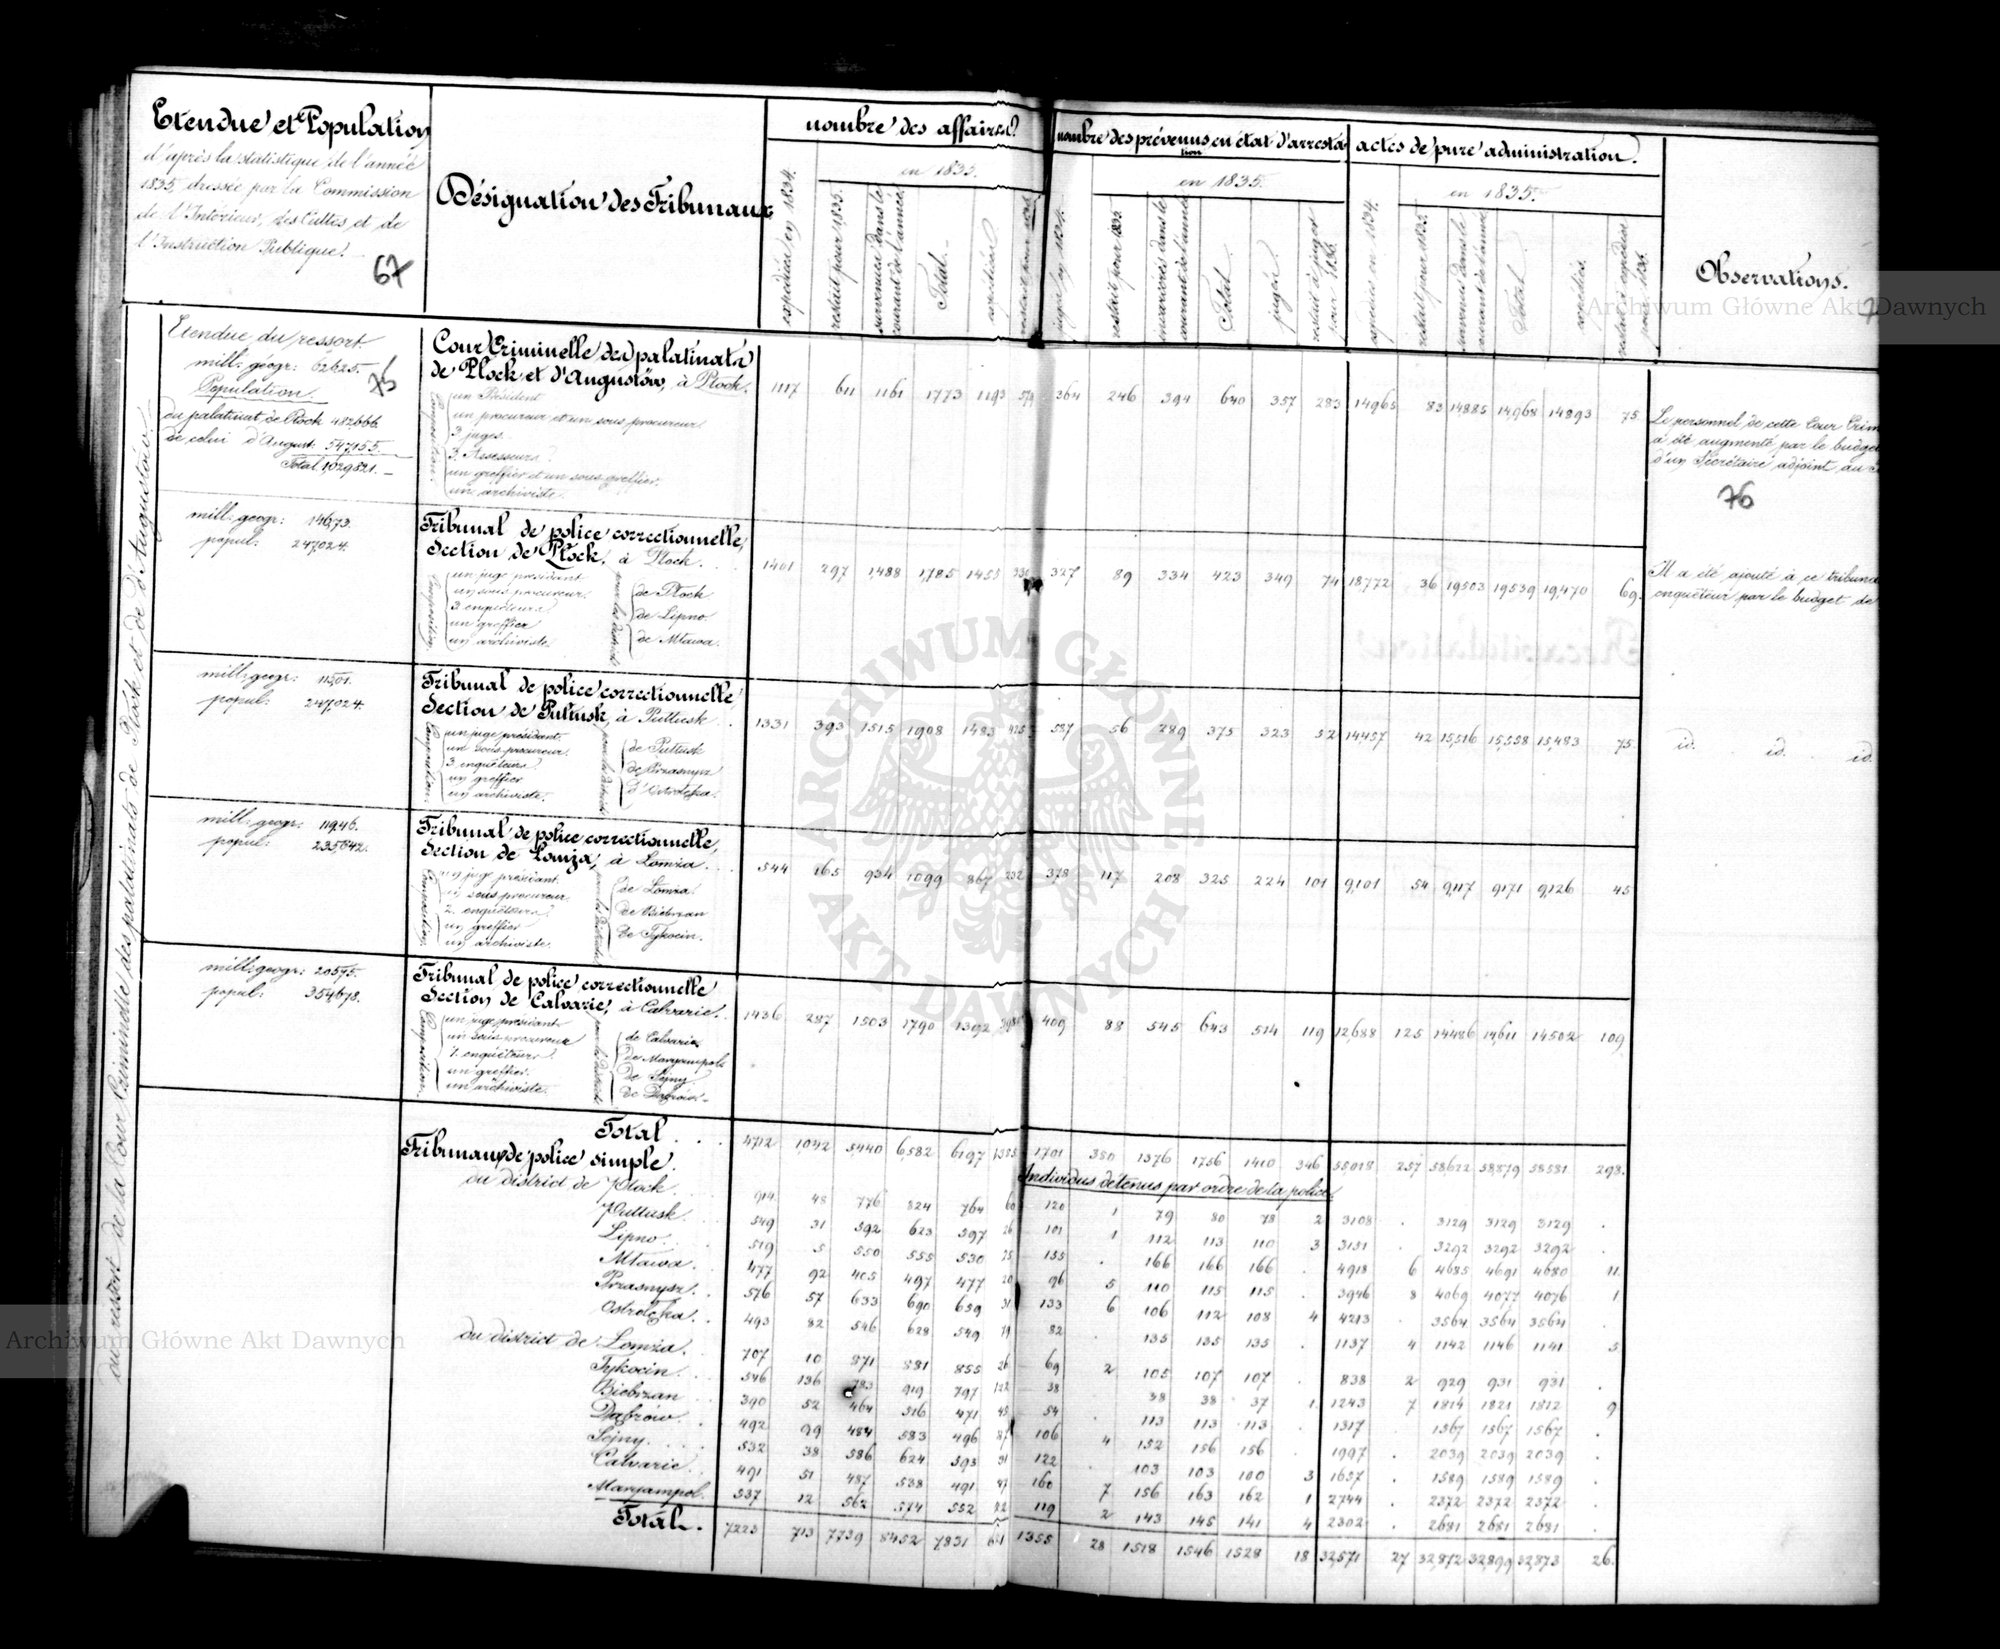 Etendue et Population
d'après la statistique de l'année
1835, dressée par la Commission
de l'Intérieur, des Cultes et de
l'Instruction Publique.
67
Désignation des Tribunaux
nombre des affaires
expédiées en 1834.
en 1835.
restait pour 1835.
survenues dans le courant de l'année
Total.
expédiées
nombre des prévenus en état d'arrestation
jugés en 1834.
en 1835.
restait pour 1835.
incarcérés dans le courant de l'année
Total.
jugés
restait à juger pour 1836.
actes de pure administration.
expédiés en 1834.
en 1835.
restait pour 1835.
survenus dans le courant de l'année
Total
expédiés
Observations.
du ressort de la Cour Criminelle des palatinats de Plock et d'Augustów.
Etendue du ressort.
mill: géogr: 626,25.
75
Population.
du palatinat de Plock 482,666.
de celui d'August: 547,155.
Total 1,029,821.
Cour Criminelle des palatinats
de Plock et d'Augustów, à Plock.
Composition.
un Président
un procureur et un sous procureur
3 juges.
3. Assesseurs.
un greffier et un sous greffier.
un archiviste.
1117 611 1161 1773 1193 579 364 246 394 640 357 283 14965 83 14885 14,968 14893 75.
Le personnel de cette Cour Crim
a été augmenté par le budget
d'un Secrétaire adjoint au
76
mill: géogr: 146,73.
popul: 247,024.
Tribunal de police correctionnelle,
Section de Plock, à Plock.
Composition
un juge président
un sous procureur.
3 enquêteurs
un greffier
un archiviste.
pour les districts
de Plock
de Lipno.
de Mława.
1401 297 1,488 1,785 1455 330 327 89 334 423 349 74 18,772 36 19503 19539 19,470 69.
Il a été ajouté à ce tribunal
enquêteur par le budget de
mill: géogr: 115,01.
popul: 247,024.
Tribunal de police correctionnelle,
Section de Pultusk, à Pultusk.
Composition.
un juge président.
un sous procureur.
3 enquêteurs.
un greffier
un archiviste.
pour les districts
de Pultusk
de Przasnysz
d'Ostrołęka.
1331 393 1515 1908 1483 425 587 56 289 375 323 52 14,457 42 15,516 15,558 15,483 75.
id. id. id.
mill: géogr: 119,46.
popul: 235,642.
Tribunal de police correctionnelle,
Section de Lomża, à Lomża.
Composition.
un juge président.
un sous procureur
2. enquêteurs
un greffier
un archiviste.
pour les districts
de Lomża.
de Biebrzan
de Tykocin.
544 165 934 1099 867 232 378 117 208 325 224 101 9,101 54 9,117 9,171 9,126 45
mill: géogr: 205,95.
popul: 354,678.
Tribunal de police correctionnelle
Section de Calvarie, à Calvarie.
Composition.
un juge président
un sous procureur
4. enquêteurs
un greffier.
un archiviste.
pour les districts
de Calvarie
de Maryampol
de Sejny
de Dąbrów
1436 287 1503 1790 1392 398 409 88 545 643 514 119 12,688 125 14,486 14,611 14,502 109
Total 4712 1,042 5,440 6,582 6197 1385 1701 350 1376 1756 1410 346 55,018 257 58,622 58,879 58,581 298.
Tribunaux de police simple.
Individus détenus par ordre de la police.
du district de Plock 914. 48 776 824 764 60 120 1 79 80 78 2 3108 . 3129 3129 3129 .
Pultusk. 549 31 592 623 597 26 101 1 112 113 110 3 3151 . 3292 3292 3292 .
Lipno. 519 5 550 555 530 25 155 . 166 166 166 . 4918 6 4685 4691 4680 11.
Mława. 477 92 405 497 477 20 96 5 110 115 115 . 3946 8 4069 4077 4076 1
Przasnysz. 576 57 633 690 659 31 133 6 106 112 108 4 4213 . 3564 3564 3564 .
Ostrołęka. 493 82 546 628 549 79 82 . 135 135 135 . 1137 4 1142 1146 1141 5
du district de Lomża. 707 10 871 881 855 26 69 2 105 107 107 . 838 2 929 931 931 .
Tykocin. 546 136 783 919 797 122 38 . 38 38 37 1. 1243 7 1814 1821 1812 9
Biebrzan 390 52 464 516 471 45 54 . 113 113 113 . 1317 . 1567 1567 1567 .
Dąbrów. 492 99 484 583 496 87 106 4 152 156 156 . 1997 . 2039 2039 2039 .
Sejny. 532 38 586 624 593 31 122 . 103 103 100 3 1657 . 1589 1589 1589 .
Calvarie 491 51 487 538 491 47 160 7 156 163 162 1 2744 . 2372 2372 2372 .
Maryampol. 537 12 562 574 552 22 119 2 143 145 141 4 2302 . 2681 2681 2681 .
Total. 7223 713 7739 8452 7831 621 1355 28 1518 1546 1528 18 32,571 27 32,872 32,899 32,873 26.
Archiwum Główne Akt Dawnych
Archiwum Główne Akt Dawnych
ARCHIWUM GŁÓWNE AKT DAWNYCH